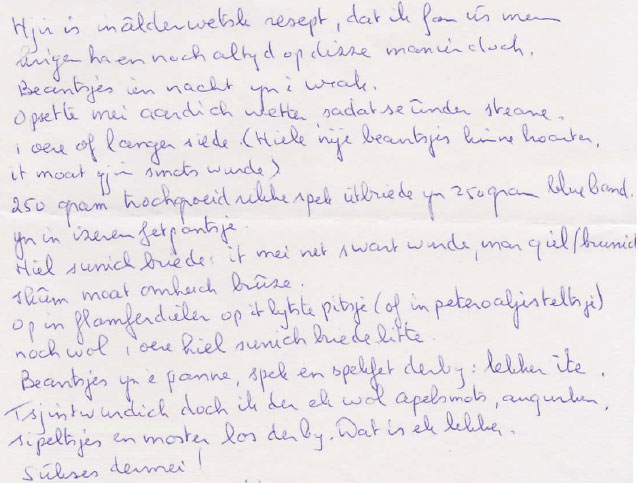 Hjir is in âlderwetsk resept, dat ik fan ús mem
krigen ha en noch altyd op dizze manier doch.
Beantsjes ien nacht yn 'e weak.
Opsette mei aardich wetter, sadat se ûnder steane.
1 oere of langer siede. (Hiele nije beantsjes kinne koarter,
it moat gjin smots wurde)
250 gram trochgroeid rikke spek útbriede yn 250 gram blue band.
yn in izeren fetpantsje.
Hiel sunich briede: it mei net swart wurde, mar giel/brunich
skûm moat omheech brûze.
Op in flamferdieler op it lytste pitsje (of in peteroaljesteltsje)
noch wol 1 oere hiel sunich briede litte.
Beantsjes yn 'e panne, spek en spekfet derby: lekker ite.
Tsjintwurdich doch ik der ek wol apelsmots, augurken,
sipeltsjes en moster los derby. Dat is ek lekker.
Súkses dermei!